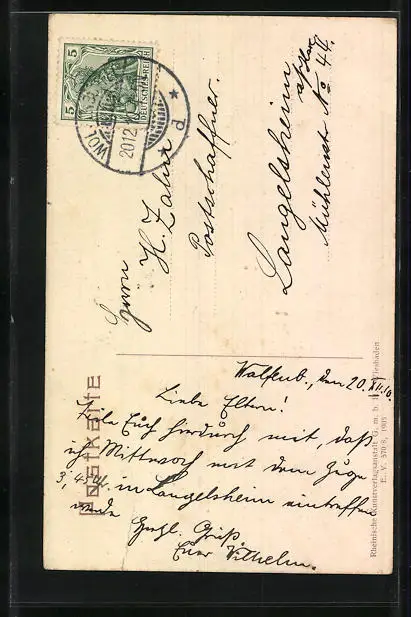 Postkarte
5
5
DEUTSCHES REICH
WOL
20.12.
d
Herrn
H. Zahn
Postschaffner.
Langelsheim
a/Harz
Mühlenstr. No 44.
Wolfenb., den 20.XII.10.
Liebe Eltern!
Teile Euch hierdurch mit, daß
ich Mittwoch mit dem Zuge
3,45 N. in Langelsheim eintreffen
werde
Herzl. Gruß
Euer Wilhelm.
Rheinische Kunstverlagsanstalt G. m. b. H. Wiesbaden
E. V. 570/8, 1905